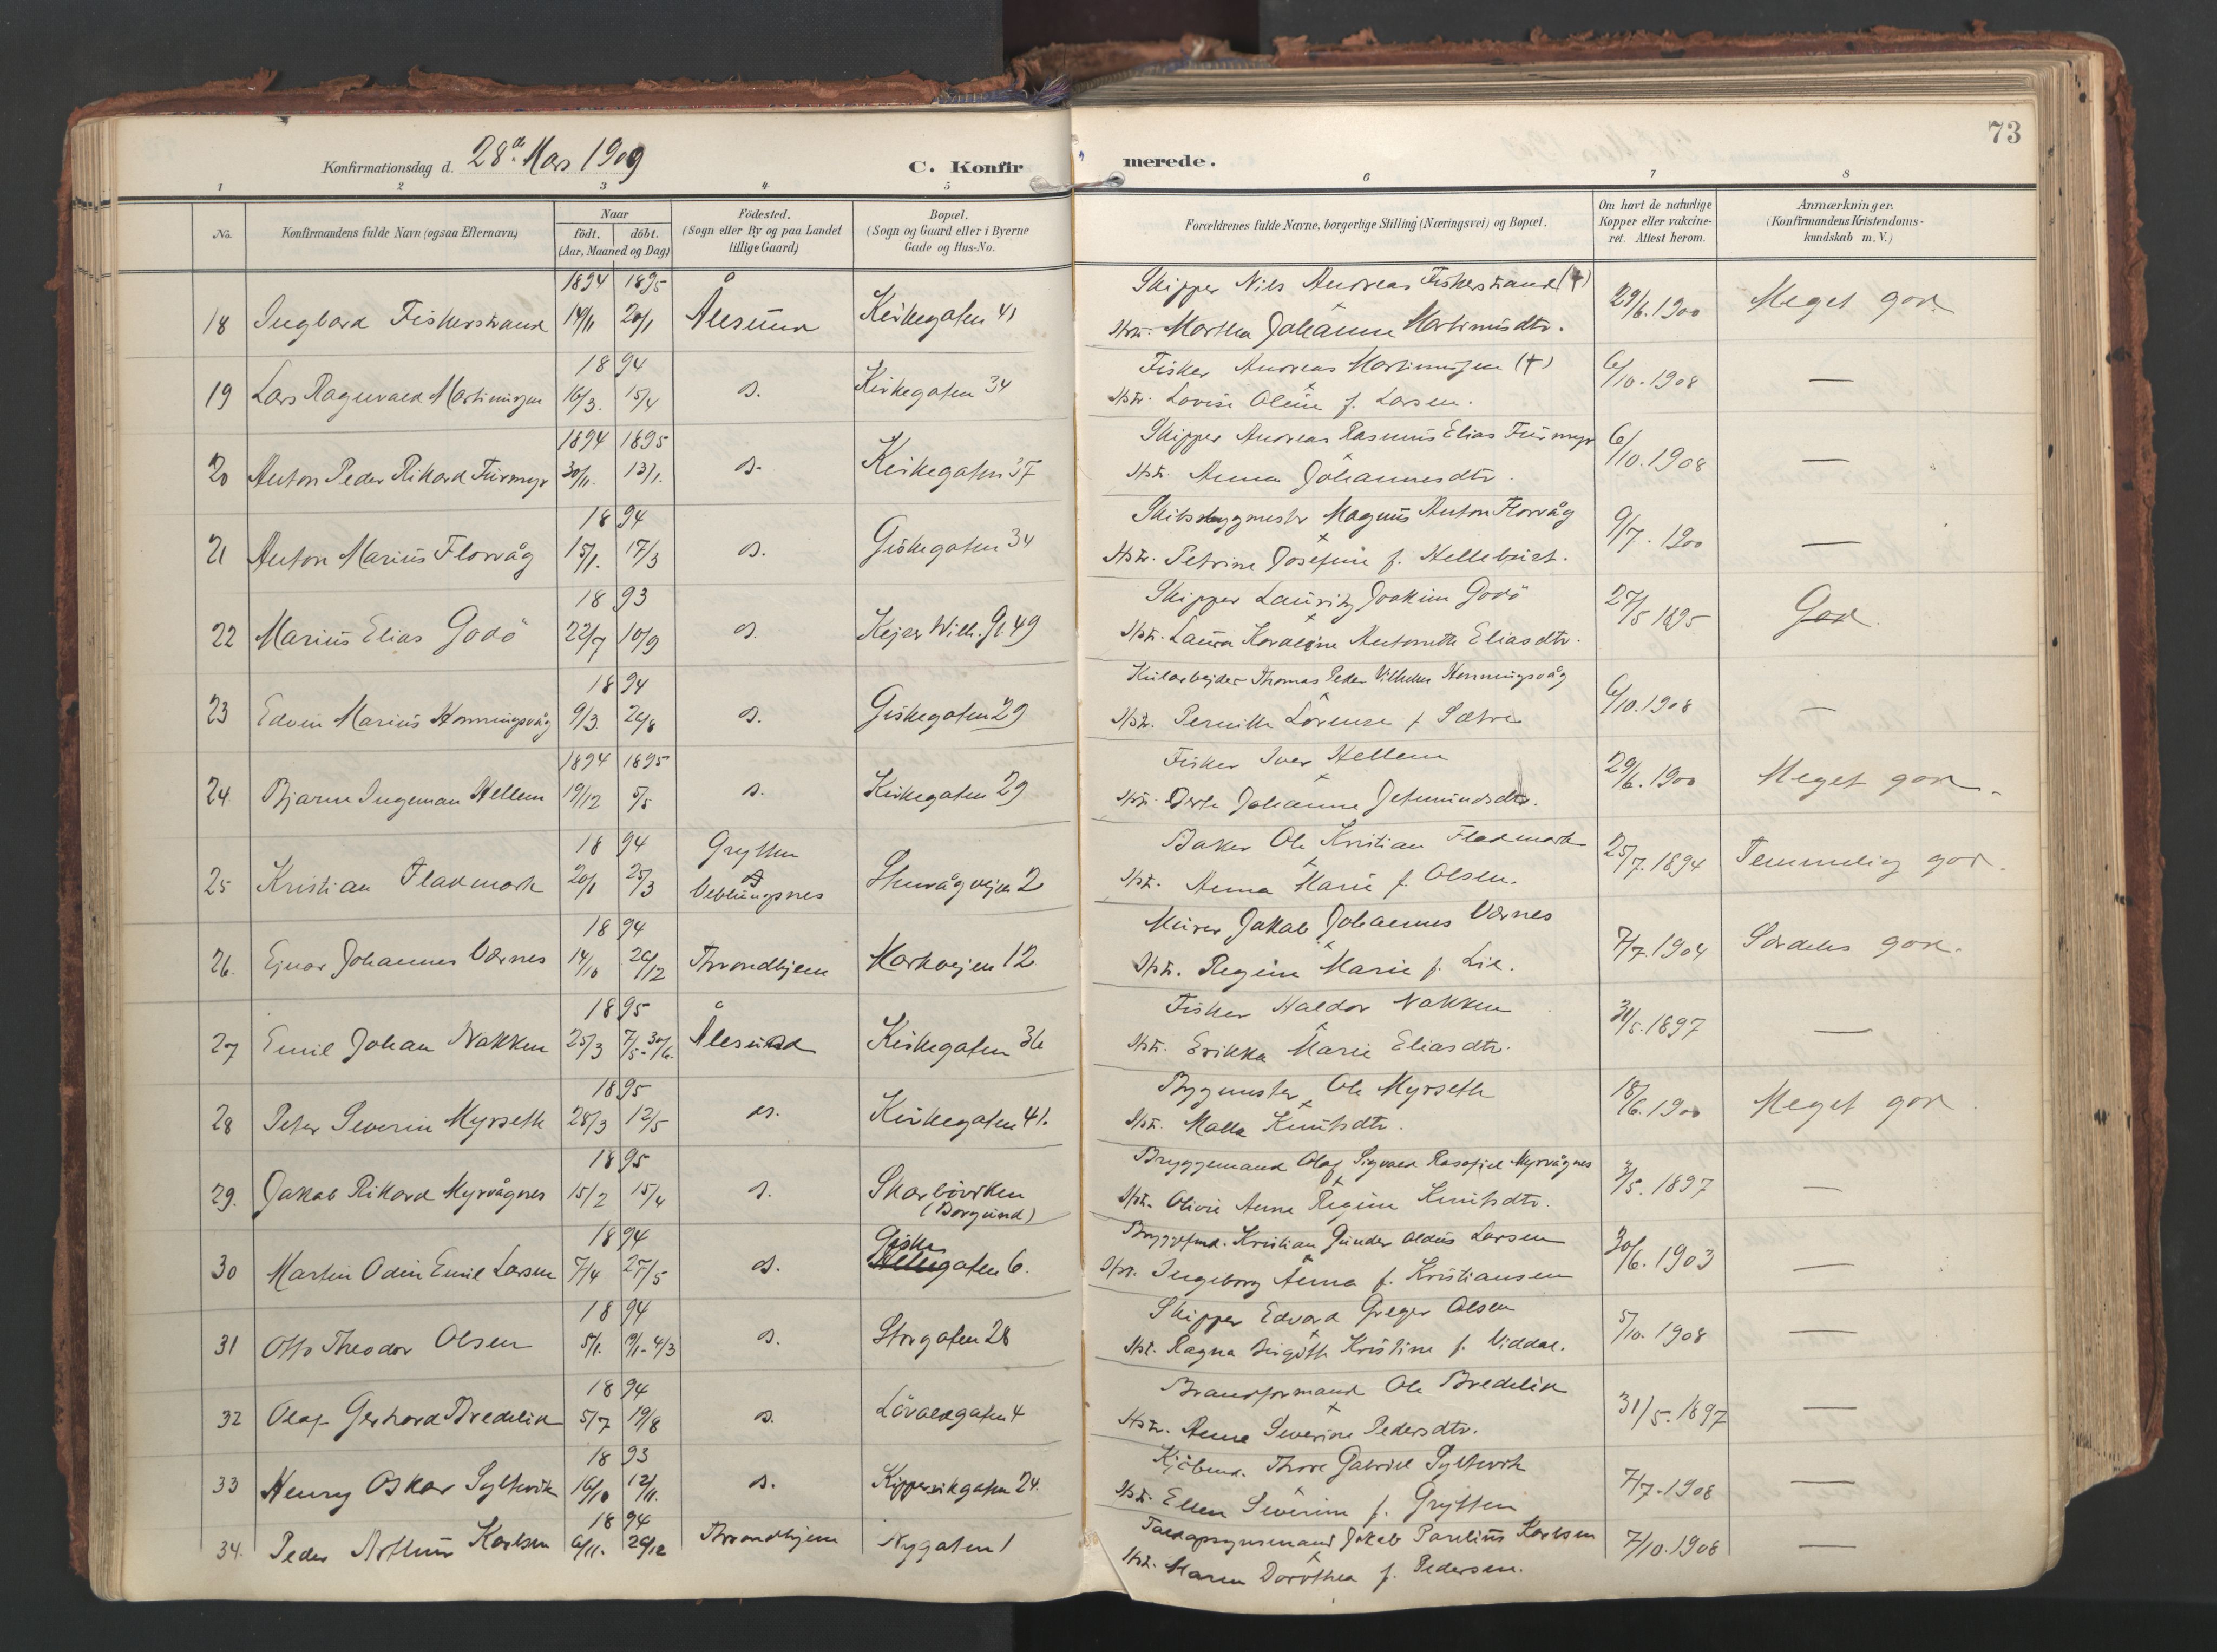 73
Konfirmationsdag d. 28de Mars 1909
C. Konfirmerede.
1 2 3 4 5 6 7 8
No.
Konfirmandens fulde Navn (ogsaa Efternavn)
Naar
født. døbt.
(Aar, Maaned og Dag)
Fødested.
(Sogn eller By og paa Landet
tillige Gaard)
Bopæl.
(Sogn og Gaard eller i Byerne
Gade og Hus-No.
Forældrenes fulde Navne, borgerlige Stilling (Næringsvei) og Bopæl.
Om havt de naturlige
Kopper eller vakcine-
ret. Attest herom.
Anmærkninger.
(Konfirmandens Kristendoms-
kundskab m. V.)
1894 1895 Skipper Nils Andreas Fiskerstrand (†)
18 Ingvard Fiskerstrand 14/11 20/1 Ålesund Kirkegaten 41 29/6.1900 Meget god.
Hstr. Martha Johanne Martinusdtr.
1894 Fisker Andreas Martinussen (†)
19 Lars Ragnvald Martinussen 16/3. 15/4 d. Kirkegaten 34 6/10.1908 —
Hstr. Lovise Oline f. Larsen.
1894 1895 Skipper Andreas Rasmus Elias Furmyr
20 Anton Peder Rikard Furmyr 30/11. 13/1. d. Kirkegaten 37 6/10.1908 —
Hstr. Anna Johannesdtr.
1894 Skibsbygmester Magnus Anton Florvåg
21 Anton Marius Florvåg 15/1. 17/3 d. Giskegaten 34 9/7.1900 —
Hstr. Petrine Josefine f. Hellebust.
1893 Skipper Lauritz Joakim Godö
22 Marius Elias Godö 22/7 10/9 d. Kejser Wilh. Gt 49 27/5 1895 God.
Hstr. Laura Karoline Antonette Eliasdtr.
1894 Kularbejder Thomas Peder Vilhelm Honningsvåg
23 Edvin Marius Honningsvåg 9/3. 26/8 d. Giskegaten 29 6/10.1908 —
Hstr. Pernille Lovense f Sætre
1894 1895 Fisker Iver Hellem
24. Bjarne Ingeman Hellem 19/12 5/5 d. Kirkegaten 29 29/6.1900 Meget god.
Hstr. Berte Johanne Jetmundsdtr.
1894 Grytten Baker Ole Kristian Fladmark
25 Kristian Fladmark 20/1 25/3 Veblungsnes Skuvågvejen 2 25/7.1894 Temmelig god.
Hstr. Anna Marie f. Olsen.
1894 Murer Jakob Johannes Værnes
26. Ejnar Johannes Værnes 14/10 26/12 Throndhjem Markvejen 12 7/7.1904 Særdeles god.
Hstr. Regine Marie f. Lie.
1895 Fisker Haldor Nakken
27 Emil Johan Nakken 25/3 7/5-30/6. Ålesund Kirkegaten 36 31/5.1897 —
Hstr. Erikka Marie Eliasdtr.
1895 Bygmester Ole Myrseth
28 Peter Severin Myrseth 28/3 12/5 d. Kirkegaten 41. 18/6.1900 Meget god.
Hstr. Malla Knutsdtr.
1895 Bryggemand Olaf Sigvald Myrvågnes
29. Jakob Rikard Myrvågnes 15/2 15/4 d. Skarböviken 3/5.1897 —
(Borgund)
Hstr. Olivie Anne Regine Knutsdtr.
1894 Giske Bryggefmd. Kristian Gunder Aldus Larsen
30 Martin Odin Emil Larsen 7/4 27/5 d. gaten 6. 30/6.1903 —
Hstr. Ingeborg Anna f. Kristiansen
1894 Skipper Edvard Greger Olsen
31 Otto Theodor Olsen 5/1. 9/1-4/3 d. Storgaten 28 5/10.1908 —
Hstr. Ragna Birgitte Kristine f. Viddal.
1894 Brandformand Ole Bredeli
32 Olaf Gerhard Bredeli 5/7 19/8 d. Lövoldgaten 4 31/5.1897 —
Hstr. Anne Severine Pedersdtr.
1893 Kjöbmd. Thore Gabriel Syltevik
33 Henry Oskar Syltevik 16/10 12/11. d. Kippervikgaten 24. 7/7.1908 —
Hstr. Ellen Severine f. Grytten
1894 Toldopsynsmand Jakob Paulius Karlsen
34. Peder Arthur Karlsen 6/11. 26/12 Throndhjem Nygaten 1 7/10.1908 —
Hstr. Maren Dorothea f. Pedersen.